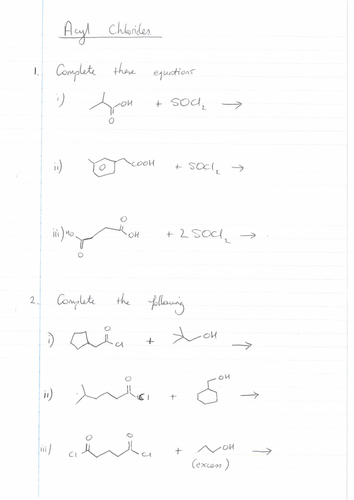 Acyl Chlorides
1. Complete these equations
i) OH + SOCl2 →
O
ii) COOH + SOCl2 →
O
iii) HO OH + 2 SOCl2 →
O
2. Complete the following
i) O Cl + OH →
ii) O Cl + OH →
iii) Cl O O Cl + OH →
(excess)